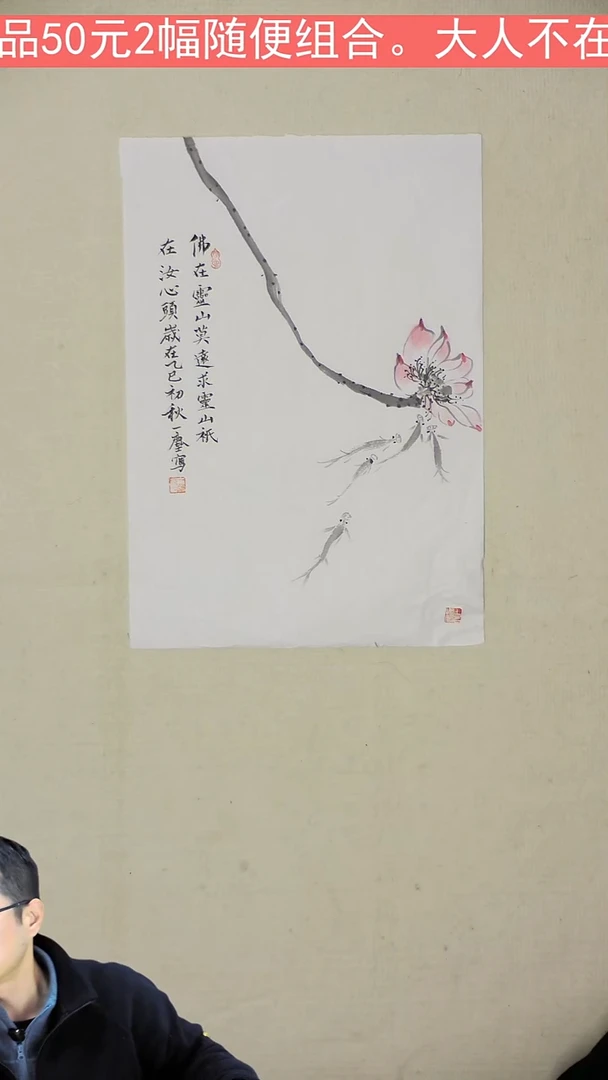 品50元2幅随便组合。大人不在
佛在靈山莫遠求靈山祇
在汝心頭歲在乙巳初秋一塵寫